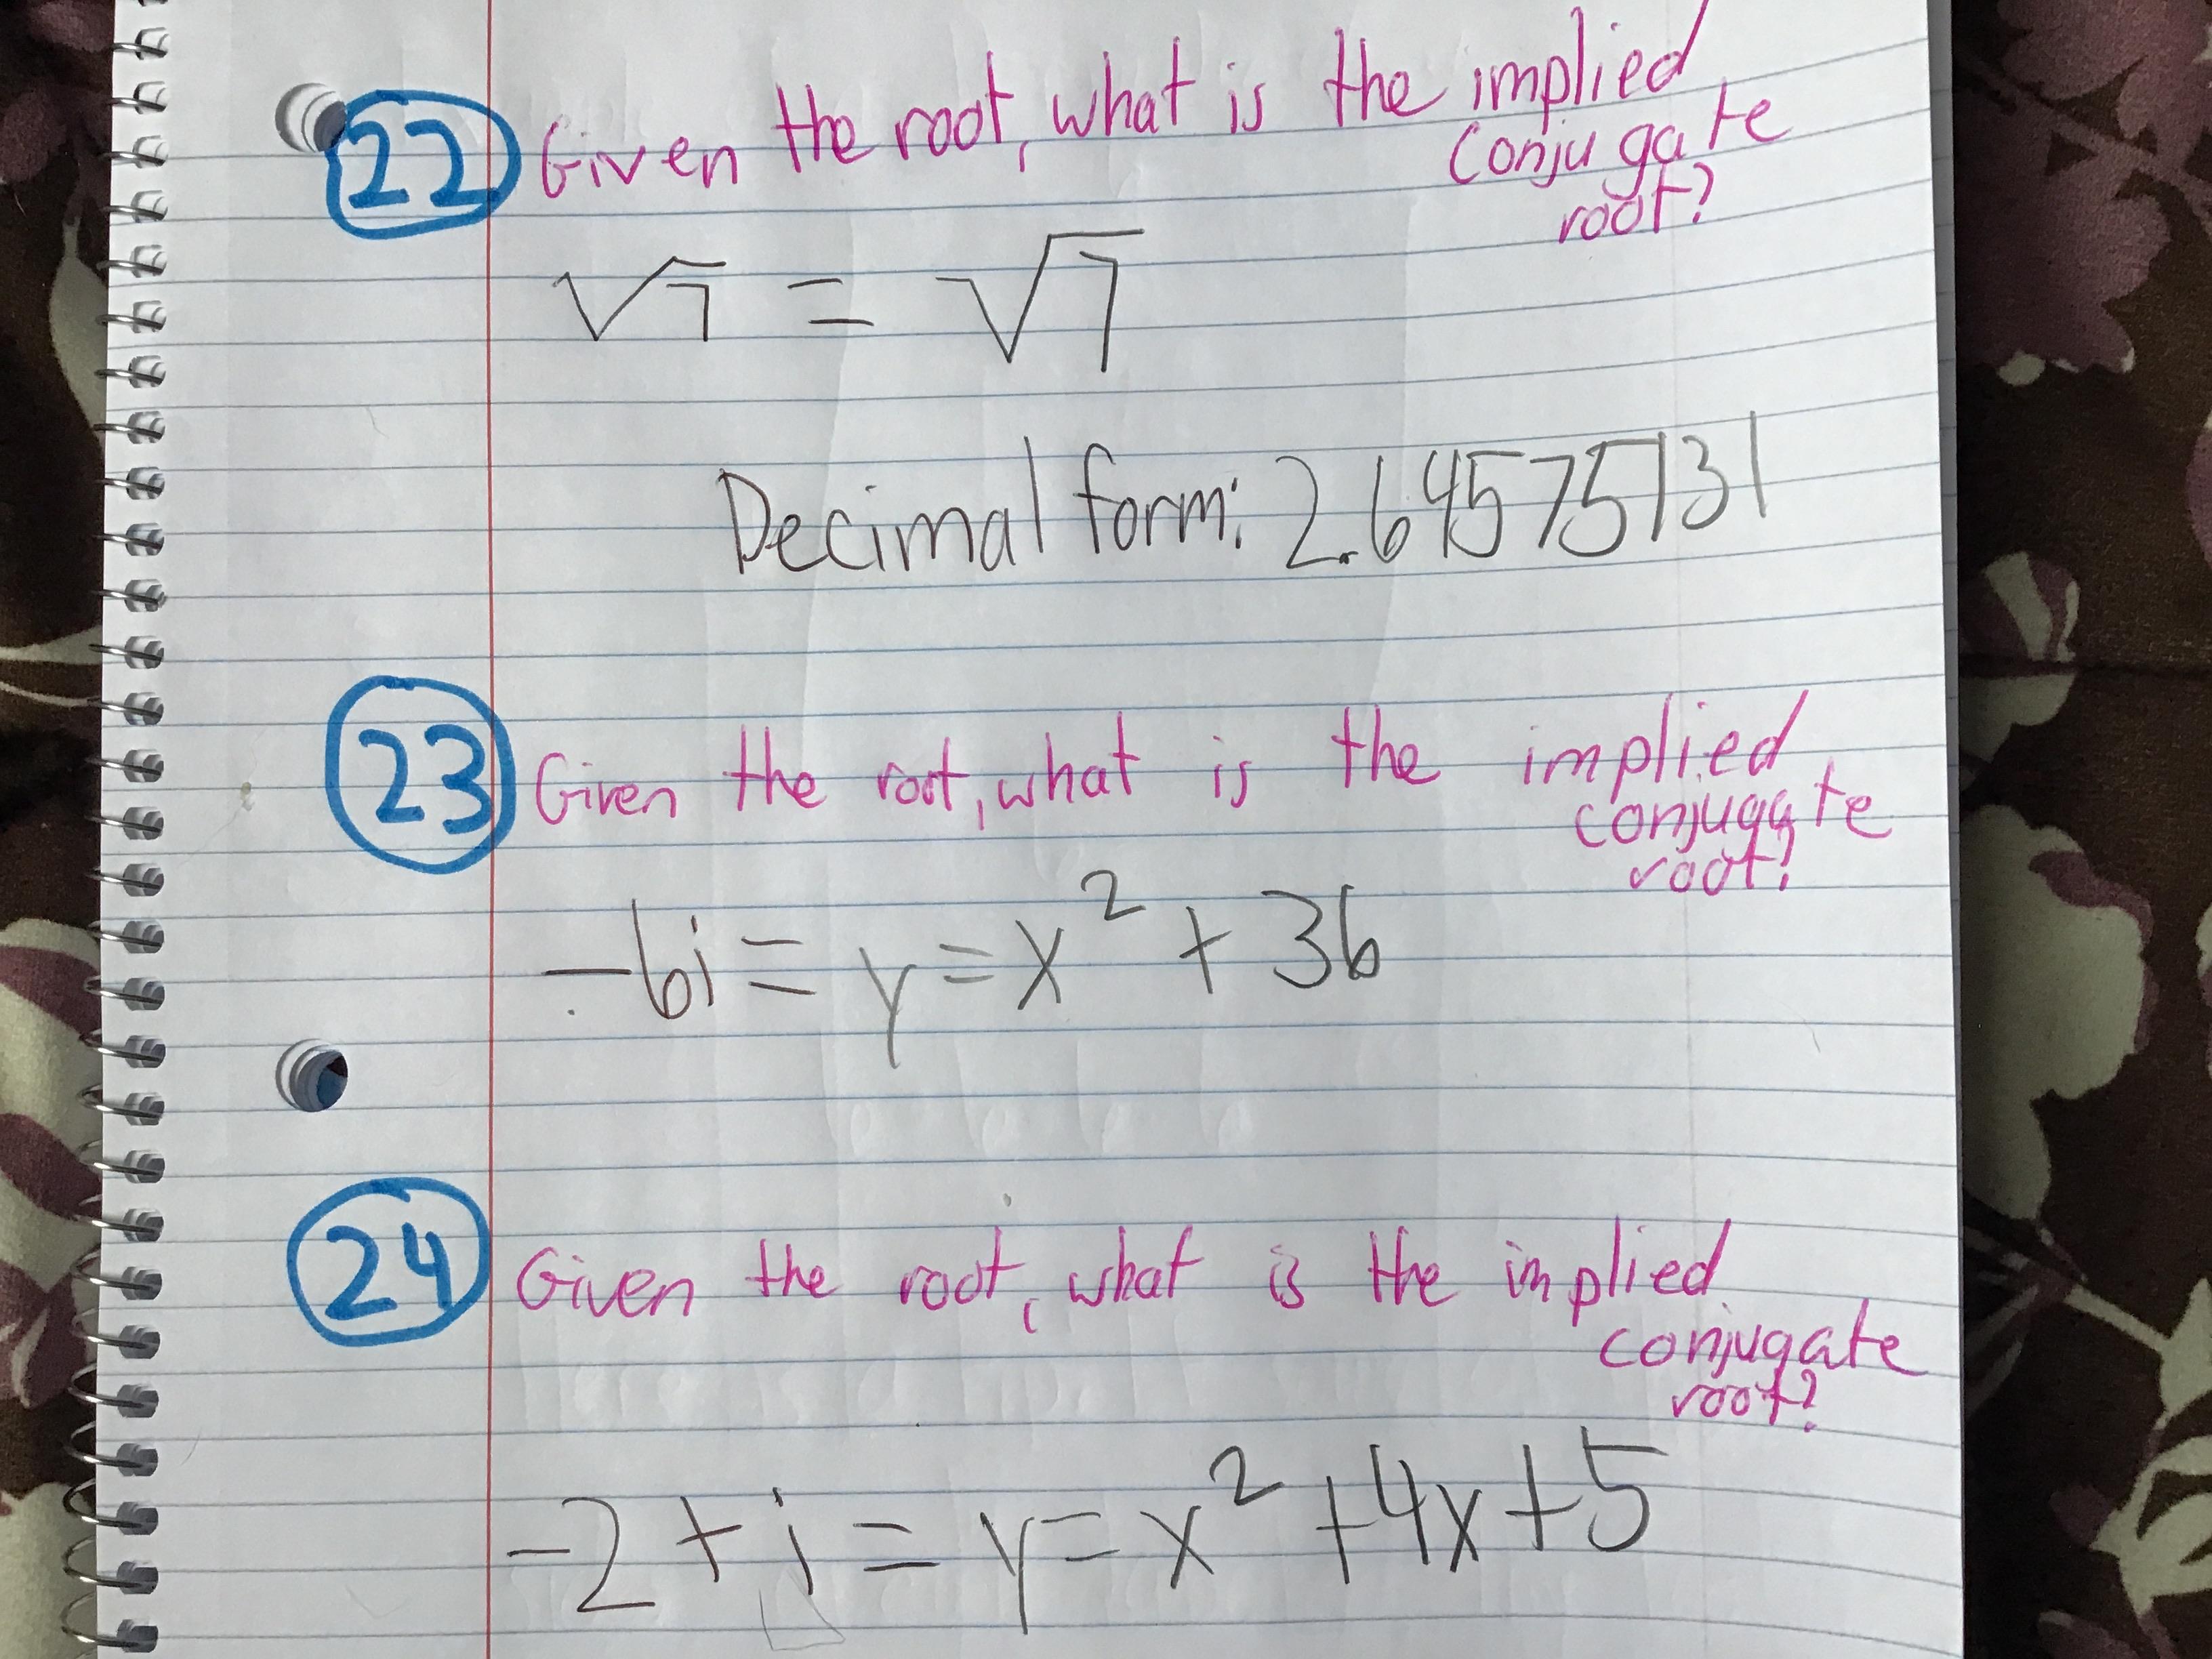 22 Given the root, what is the implied
conjugate
root?
√7 = √7
Decimal form: 2.64575131
23 Given the root, what is the implied
conjugate
root?
-6i = y = x² + 36
24 Given the root, what is the implied
conjugate
root?
-2 + i = y = x² + 4x + 5